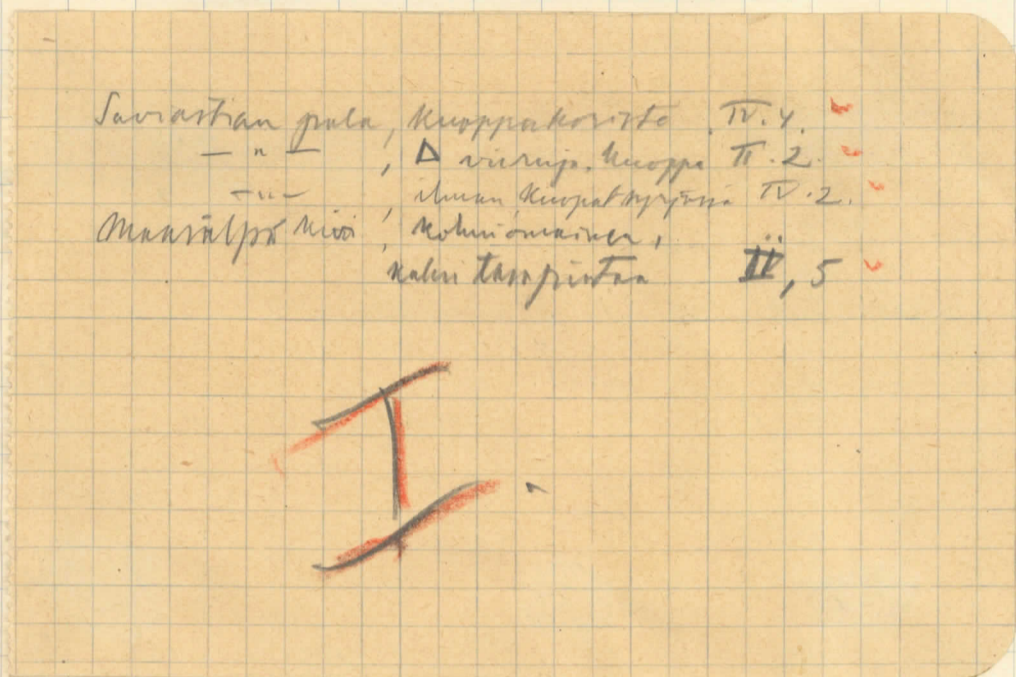 Saviastian pala, Kuoppakoriste IV. 4.
— " — , Δ vieruja. Kuoppa II. 2.
— " — , ilman kuopat syrjässä IV. 2.
Maasälpä kivi, kolmiomainen,
kaksi tasopintaa II, 5
I.